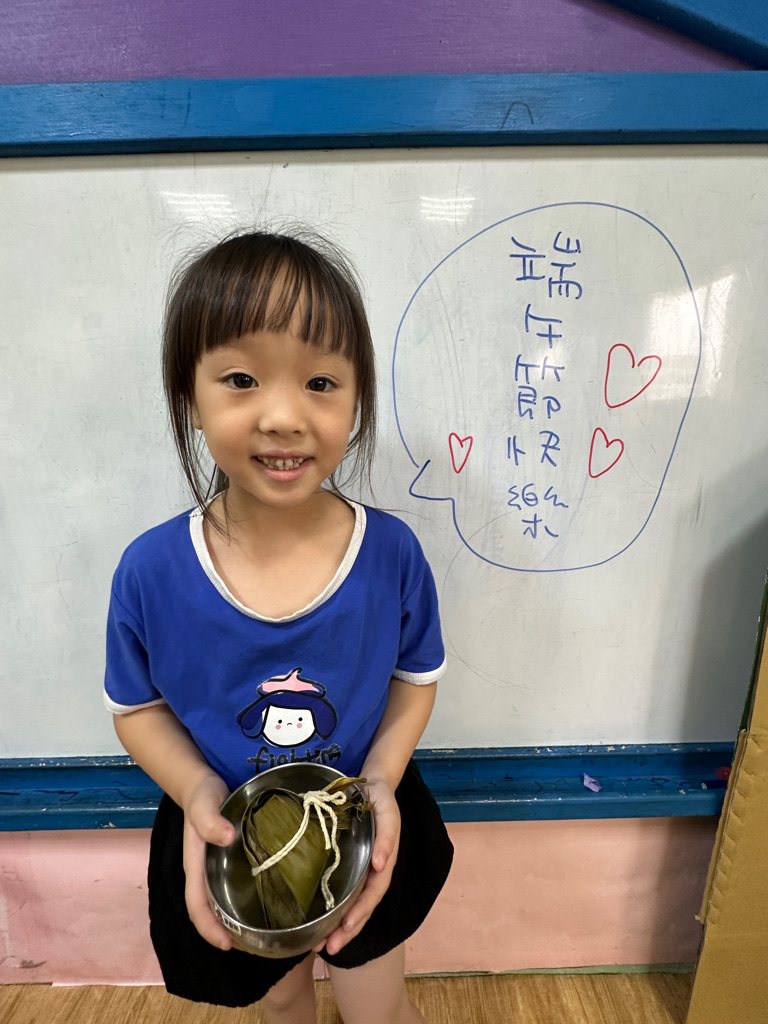 端午節快樂